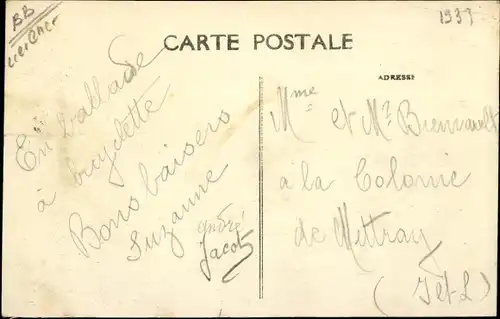 BB
1933
CARTE POSTALE
ADRESSE
En ballade
à bicyclette
Bons baisers
Suzanne
André
Jacot
Mme et Mr Biennault
à la Colonie
de Mettray
(I et L)